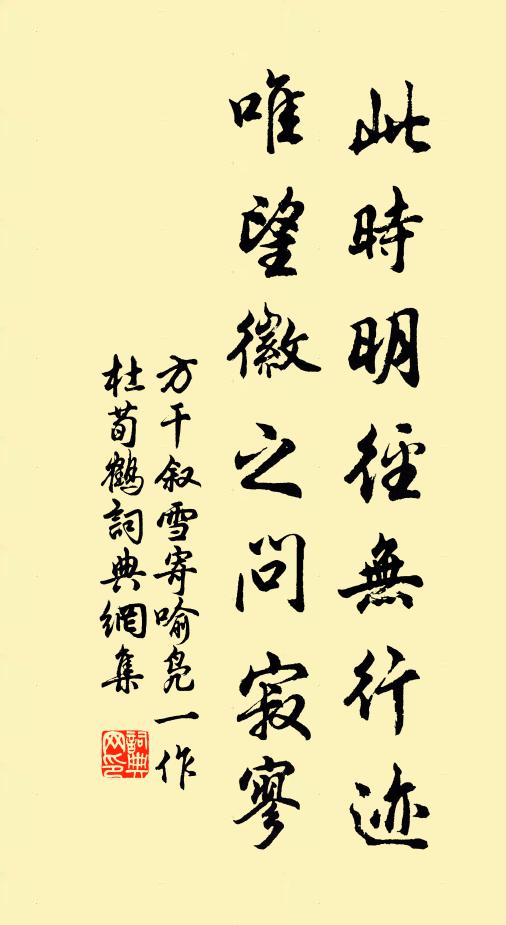 此時明徑無行迹
唯望徽之問寂寥
方干叙雪寄喻凫一作
杜荀鶴詞典網集
詞典网印